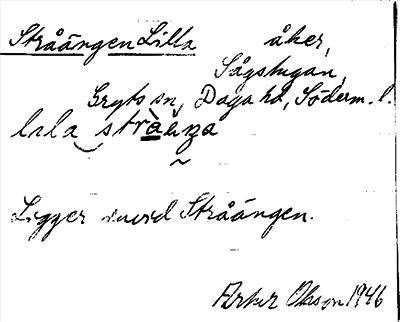 Stråängen Lilla åker,
Sågstugan,
Gryts sn, Daga hd, Söderm. l.
lila
Ligger invid Stråängen.
Olsson 1946